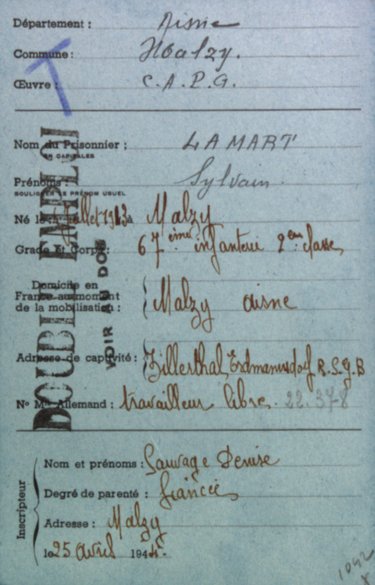 Département : Aisne
Commune : Malzy.
Œuvre : C.A.P.G.
Nom du Prisonnier : LAMART
EN CAPITALES
Prénoms : Sylvain.
SOULIGNER LE PRÉNOM USUEL
Né le juillet 1913 à Malzy
Grade et Corps : 67 ème infanterie 2ème classe
Domicile en
France au moment
de la mobilisation : Malzy aisne
Adresse de captivité : Zillerthal Erdmannsdorf R.S.G.B
No Mle Allemand : travailleur libre. 22.378
Inscripteur
Nom et prénoms : Sauvage Denise
Degré de parenté : fiancée
Adresse : Malzy
le 25 avril 1944.
DOUBLE EMPLOI
VOIR AU DOS